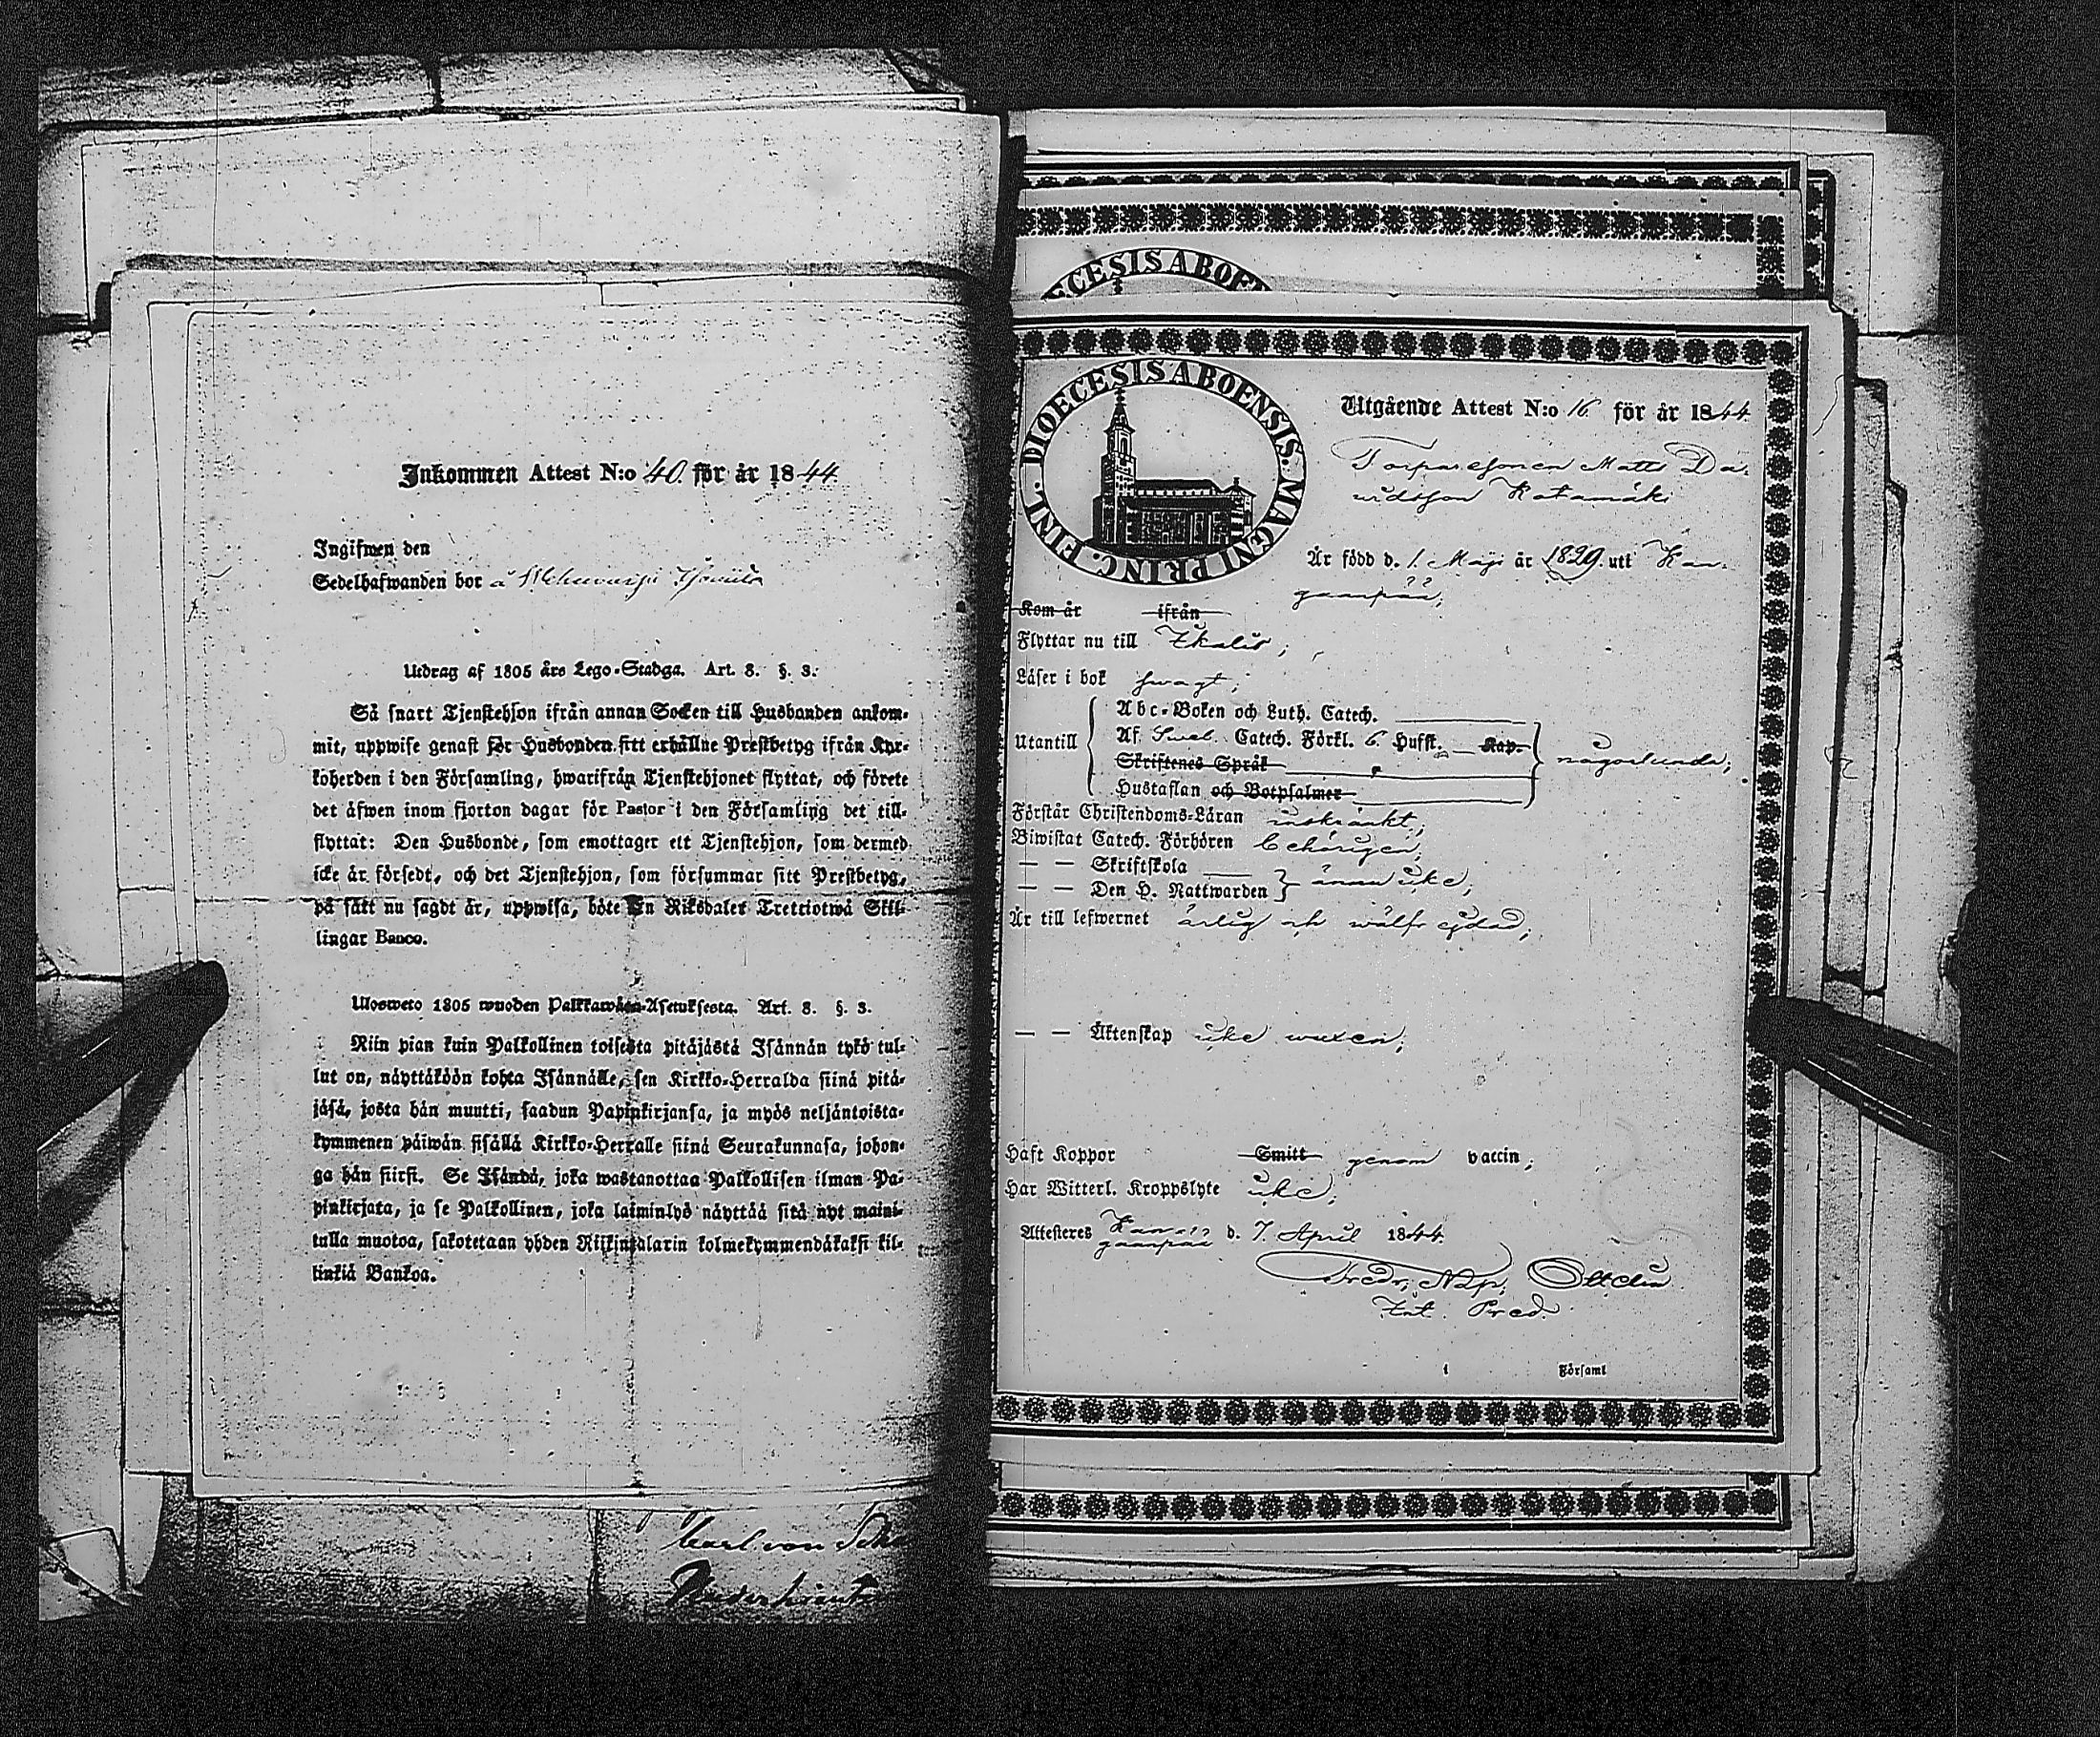 Inkommen Attest N:o 40. för år 1844.
Ingifwen den
Sedelhafwanden bor å
Utdrag af 1805 års Lego-Stadga. Art. 8. §. 3.
Så snart Tjenstehjon ifrån annan Socken till Husbonden ankom-
mit, uppwise genast för Husbonden sitt erhållne Prestbetyg ifrån Kyr-
koherden i den Församling, hwarifrån Tjenstehjonet flyttat, och förete
det äfwen inom fjorton dagar för Pastor i den Församling det till-
flyttat: Den Husbonde, som emottager ett Tjenstehjon, som dermed
icke är försedt, och det Tjenstehjon, som försummar sitt Prestbetyg,
på sätt nu sagdt är, uppwisa, böte En Riksdaler Trettiotwå Skil-
lingar Banco.
Ulosweto 1805 wuoden Palkkawäen-Asetuksesta. Art. 8. §. 3.
Niin pian kuin Palkollinen toisesta pitäjästä Isännän tykö tul-
lut on, näyttäköön kohta Isännälle, sen Kirkko-Herralda siinä pitä-
jäsä, josta hän muutti, saadun Papinkirjansa, ja myös neljäntoista-
kymmenen päiwän sisällä Kirkko-Herralle siinä Seurakunnasa, johon-
ga hän siirsi. Se Isändä, joka wastanottaa Palkollisen ilman Pa-
pinkirjata, ja se Palkollinen, joka laiminlyö näyttää sitä nyt maini-
tulla muotoa, sakotetaan yhden Riikintalarin kolmekymmendäkaksi kil-
linkiä Bankoa.
Carl von
DIOECESIS ABOEN
DIOECESIS ABOENSIS. MAGNI PRINC. FINL.
Utgående Attest N:o 16. för år 1844.
Torparesonen Matts Da-
widsson Ratamäki
Är född d. 1. Maji år 1829. uti Kan-
gaanpää;
Kom år ifrån
Flyttar nu till Ikalis;
Läser i bok swagt;
Utantill
Abc-Boken och Luth. Catech.
Af Swel. Catech. Förkl. 6. Hufst. Kap.
någorlunda;
Skriftenes Språk
Hustaflan och Botpsalmer
Förstår Christendoms-Läran inskränkt;
Biwistat Catech. Förhören behörigen;
— — Skriftskola
ännu icke;
— — Den H. Nattwarden
Är till lefwernet ärlig och wälfrejdad;
— — Äktenskap icke wuxen;
Haft Koppor Smitt genom vaccin;
Har Witterl. Kroppslyte icke;
Attesteres Kan-
gaanpää d. 7. April 1844.
Fredr. Ottelin
Int. Pred.
i Församl